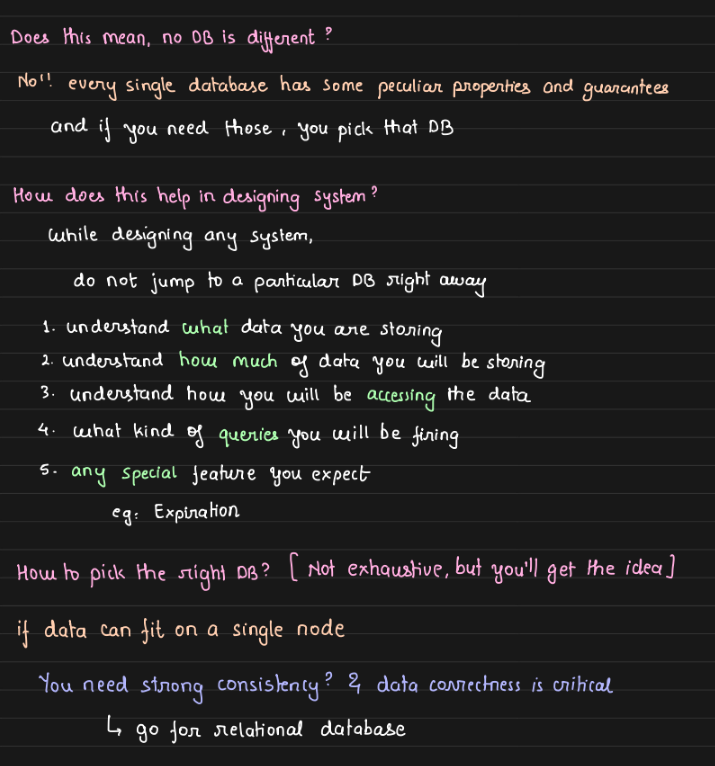 Does this mean, no DB is different?
No!! every single database has some peculiar properties and guarantees
and if you need those, you pick that DB
How does this help in designing system?
While designing any system,
do not jump to a particular DB right away
1. understand what data you are storing
2. understand how much of data you will be storing
3. understand how you will be accessing the data
4. what kind of queries you will be firing
5. any special feature you expect
eg: Expiration
How to pick the right DB? [Not exhaustive, but you'll get the idea]
if data can fit on a single node
You need strong consistency? & data correctness is critical
↳ go for relational database